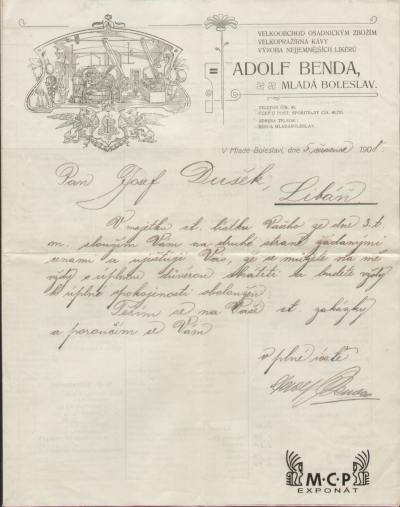 VELKOOBCHOD OSADNICKÝM ZBOŽÍM
VELKOPRAŽÍRNA KÁVY
VÝROBA NEJJEMNĚJŠÍCH LIKÉRŮ
ADOLF BENDA,
MLADÁ BOLESLAV.
TELEFON ČÍS.
ADRESA TELEGR.:
BENDA MLADÁBOLESLAV.
V Mladé Boleslavi, dne 5 července 190
Pan Josef Dušek,
Libáň
V majetku ct. lístku Vašeho ze dne 3. t.
m. sloužím Vám na druhé straně žádanými
cenami a ujišťuji Vás, že se můžete na mě
vždy s úplnou důvěrou obrátiti a budete vždy
k úplné spokojenosti obsloužen
Těším se na Vaše ct. zakázky
a poroučím se Vám
v plné úctě
Adolf Benda
M·C·P
EXPONÁT